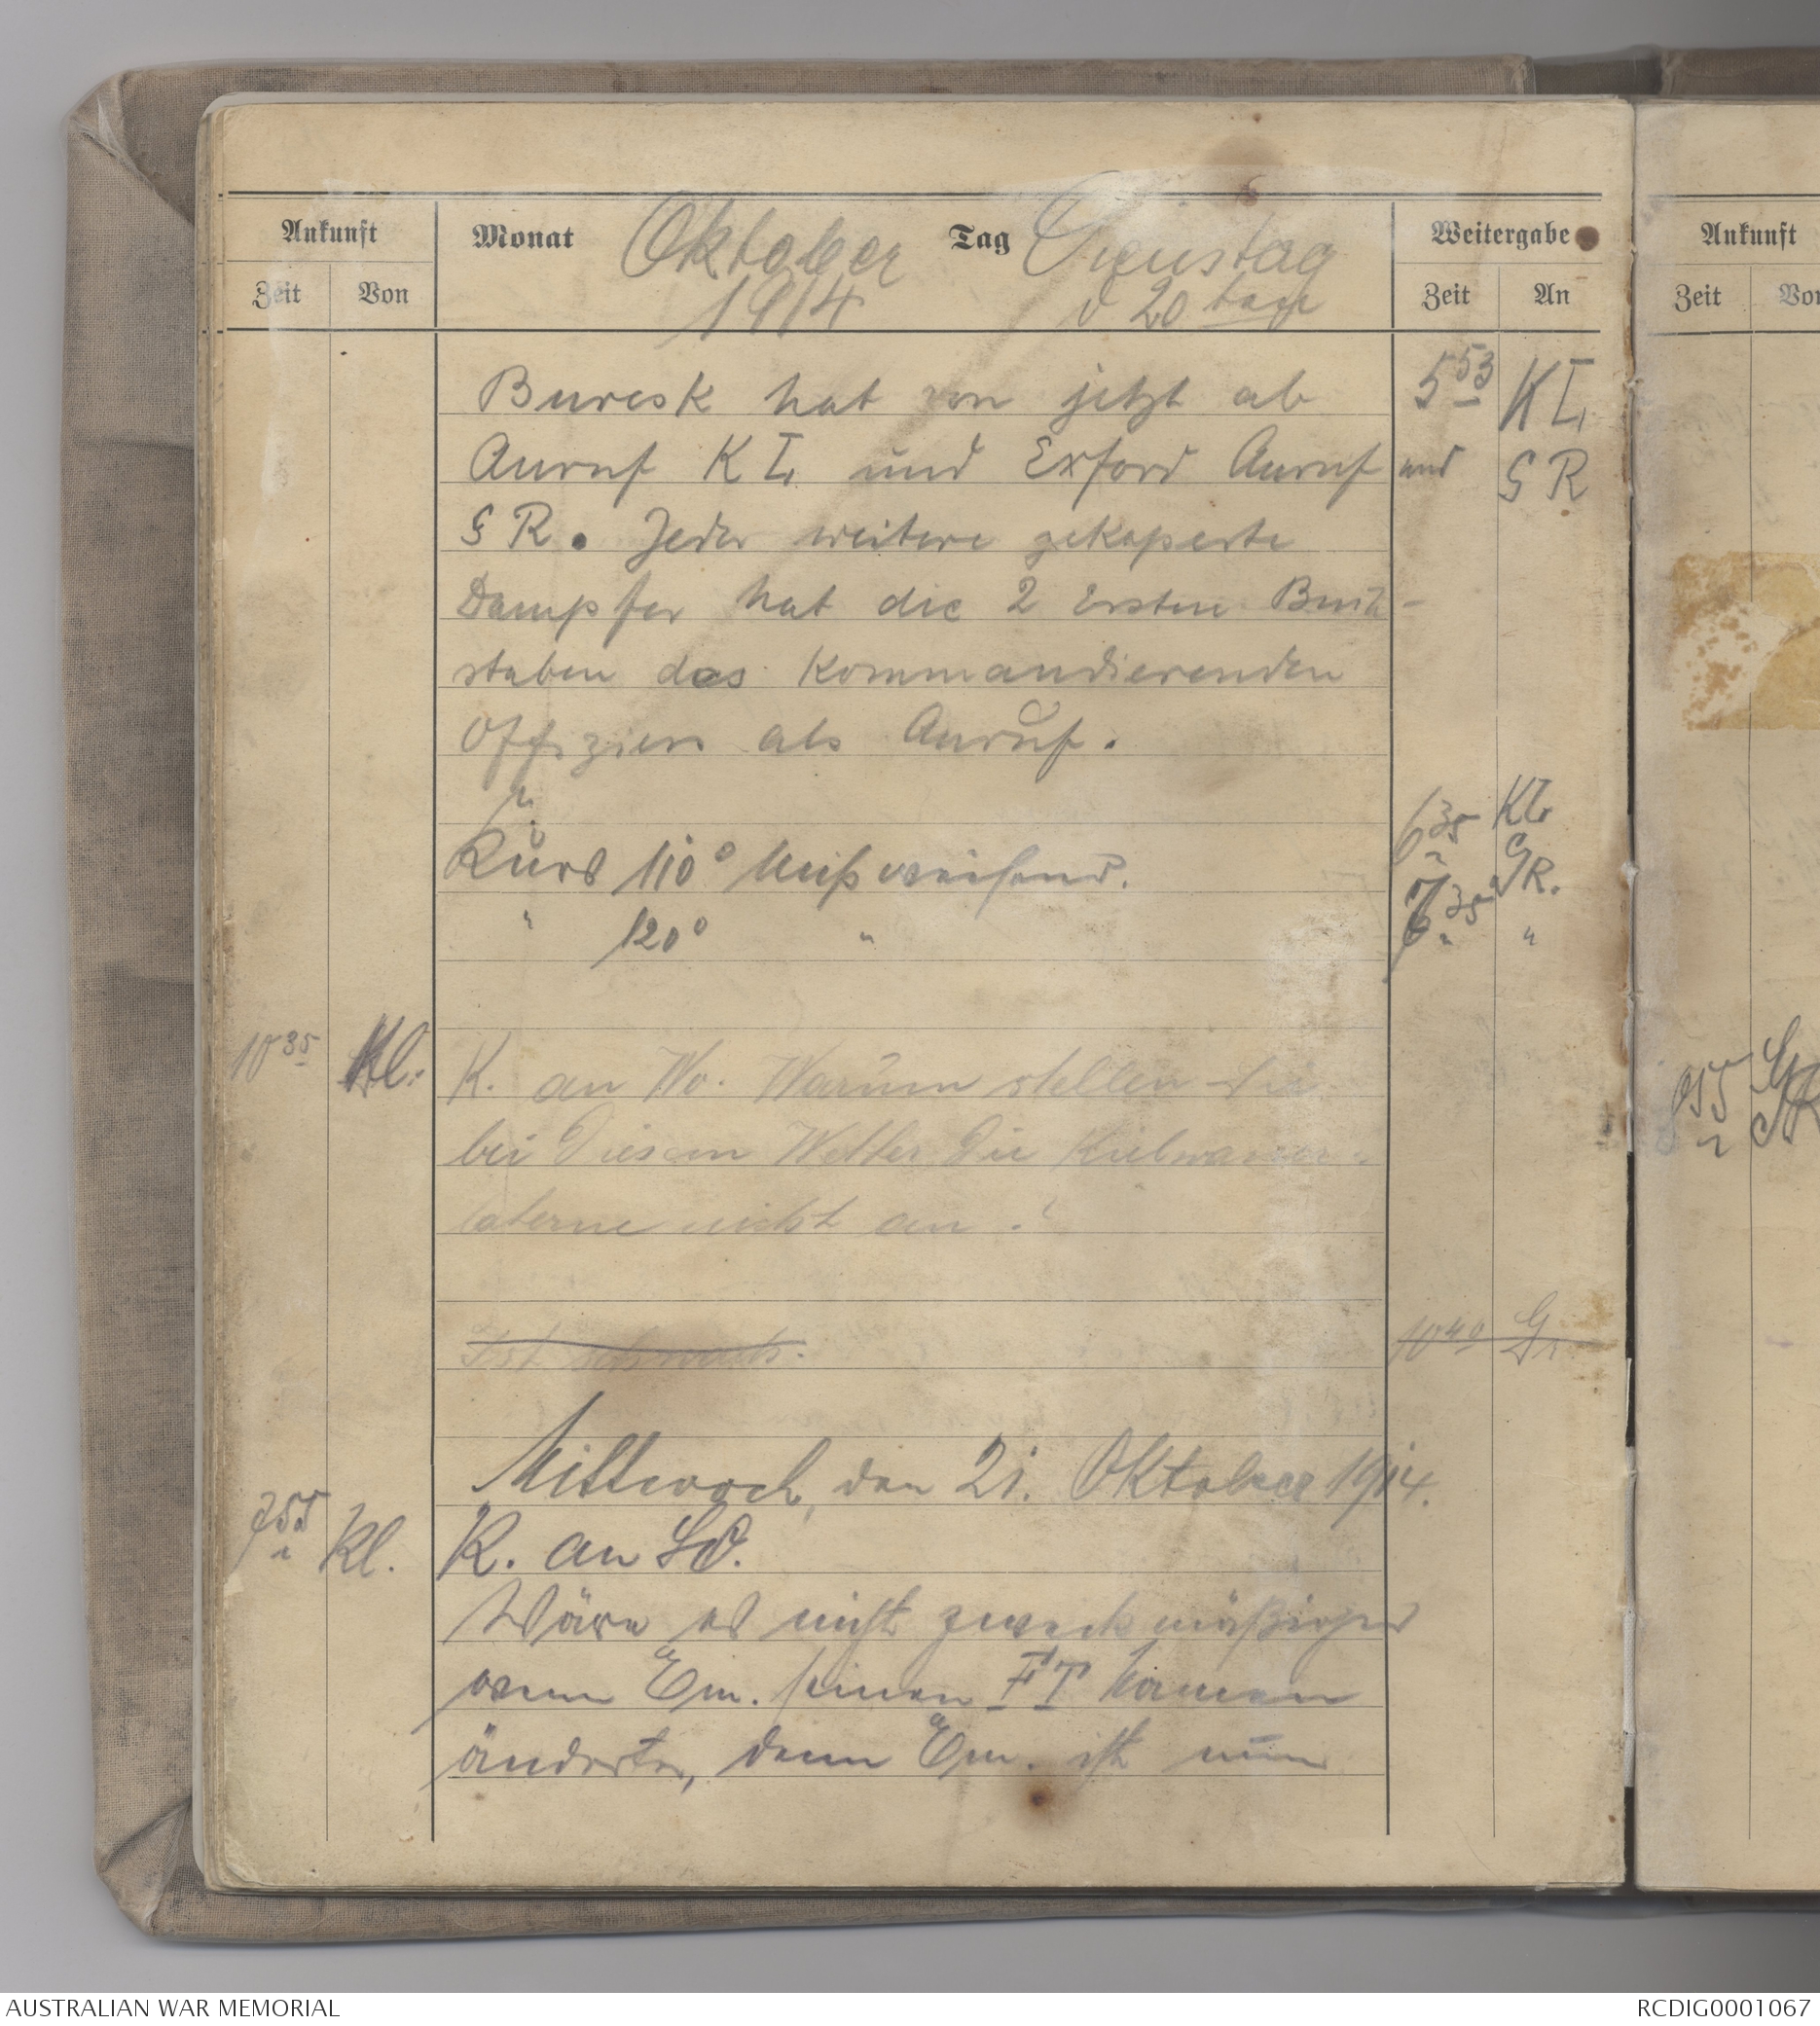 Ankunft Monat Oktober Tag Dienstag Weitergabe Ankunft
Zeit Von 1914 d 20 ten Zeit An Zeit Von
Buresk hat von jetzt ab 5 53 K L
Anruf K L und Exford Anruf und G R
G R. Jeder weitere gekaperte
Dampfer hat die 2 ersten Buch-
staben des Kommandierenden
Offiziers als Anruf.
Kurs 110° mißweisend. 6 35 KL GR.
" 120° " 7 35 "
10 35 Kl. K. an Wo. Warum stellen Sie
bei diesem Wetter die Kielwasser-
laterne nicht an ?
Ist schwach. 10 40
Mittwoch, den 21. Oktober 1914.
7 55 Kl. K. an
Wäre es nicht zweckmäßiger
wenn Em. seinen FT Namen
änderte, denn Em. ist nun
AUSTRALIAN WAR MEMORIAL RCDIG0001067